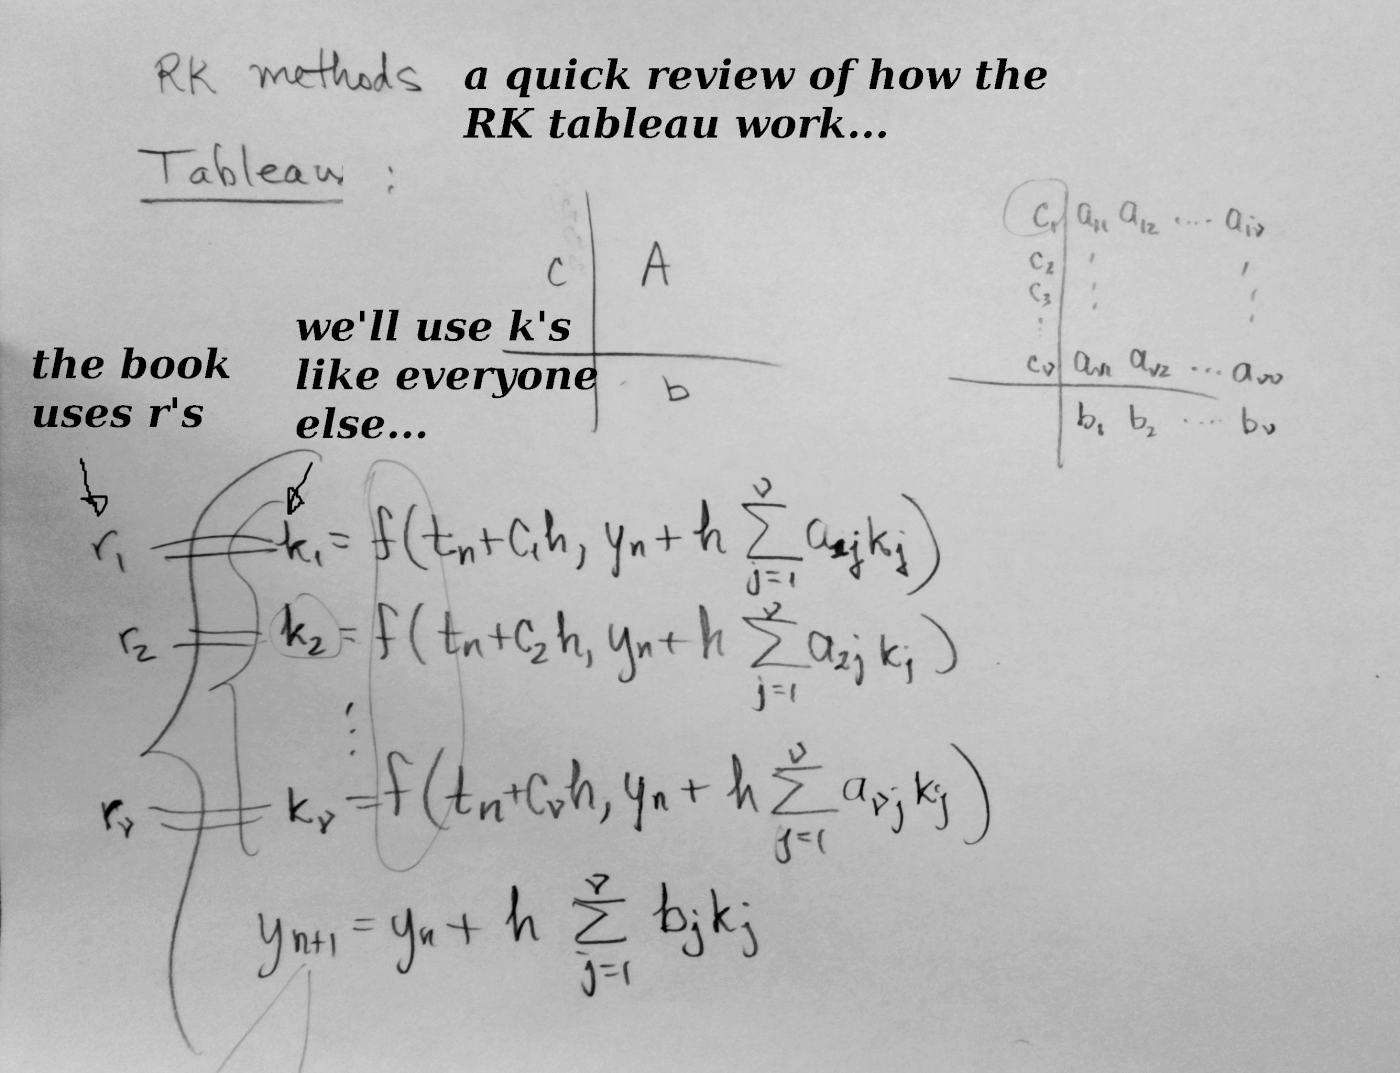 RK methods a quick review of how the
RK tableau work...
Tableau :
c | A
b
c₁ | a₁₁ a₁₂ .... a₁ν
c₂
c₃
⋮
cν | aν₁ aν₂ ... aνν
b₁ b₂ .... bν
the book
uses r's
we'll use k's
like everyone
else...
r₁ = k₁ = f(tₙ+c₁h, yₙ+h ∑_{j=1}^{ν} a₁ⱼkⱼ)
r₂ = k₂ = f(tₙ+c₂h, yₙ+h ∑_{j=1}^{ν} a₂ⱼkⱼ)
⋮
rν = kν = f(tₙ+cνh, yₙ+h ∑_{j=1}^{ν} aνⱼkⱼ)
yₙ₊₁ = yₙ + h ∑_{j=1}^{ν} bⱼkⱼ